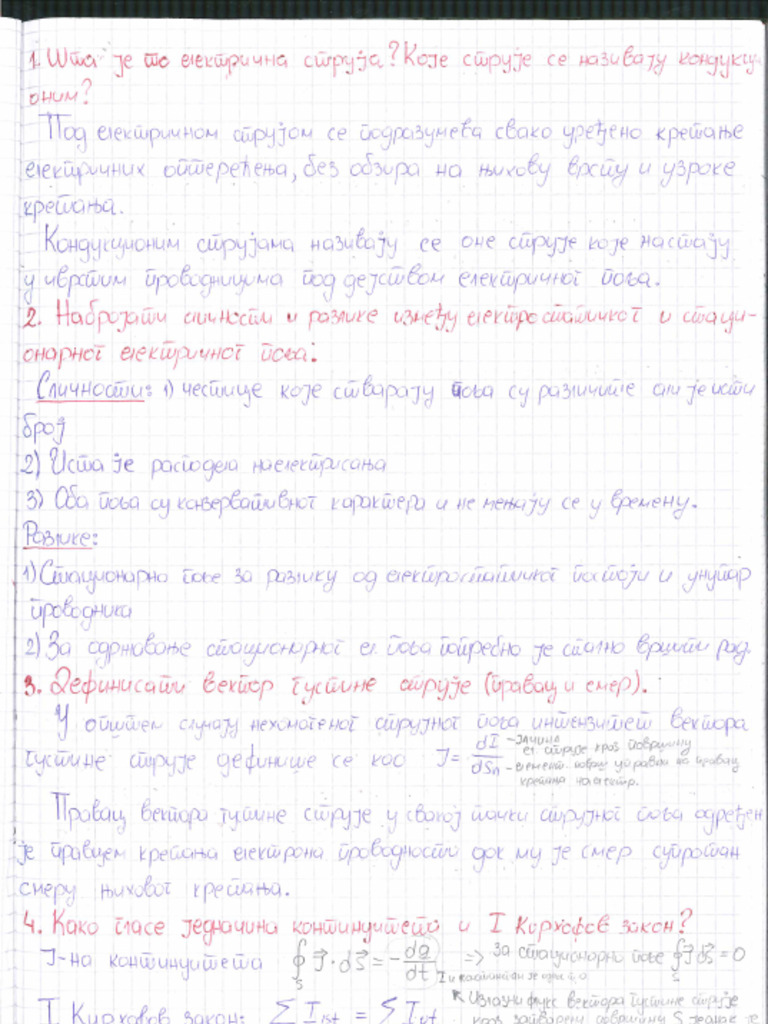 1. Шта је то електрична струја? Које струје се називају кондукци-
оним?
Под електричном струјом се подразумева свако уређено кретање
електричних оптерећења, без обзира на њихову врсту и узроке
кретања.
Кондукционим струјама називају се оне струје које настају
у чврстим проводницима под дејством електричног поља.
2. Набројати сличности и разлике између електростатичког и стаци-
онарног електричног поља:
Сличности: 1) честице које стварају поља су различите али је исти
број
2) Иста је расподела наелектрисања
3) Оба поља су конзервативног карактера и не мењају се у времену.
Разлике:
1) Стационарно поље за разлику од електростатичког постоји и унутар
проводника
2) За одрновање стационарног ел. поља потребно је стално вршити рад.
3. Дефинисати вектор густине струје (правац и смер).
У општем случају нехомогеног струјног поља интензитет вектора
густине струје дефинише се као J = dI/dSn
– јачина ел. струје кроз површину
– елемент површ. управан на правац
кретања наелектр.
Правац вектора густине струје у свакој тачки струјног поља одређен
је правцем кретања електрона проводности док му је смер супротан
смеру њиховог кретања.
4. Како гласе једначина континуитета и I Кирхофов закон?
Ј-на континуитета ∮S J⃗·dS⃗ = -dQ/dt => За стационарно поље ∮S J⃗dS⃗ = 0
I Кирховов закон: Σ I = Σ I
Излазни флукс вектора густине струје
кроз затворену површину S једнак је